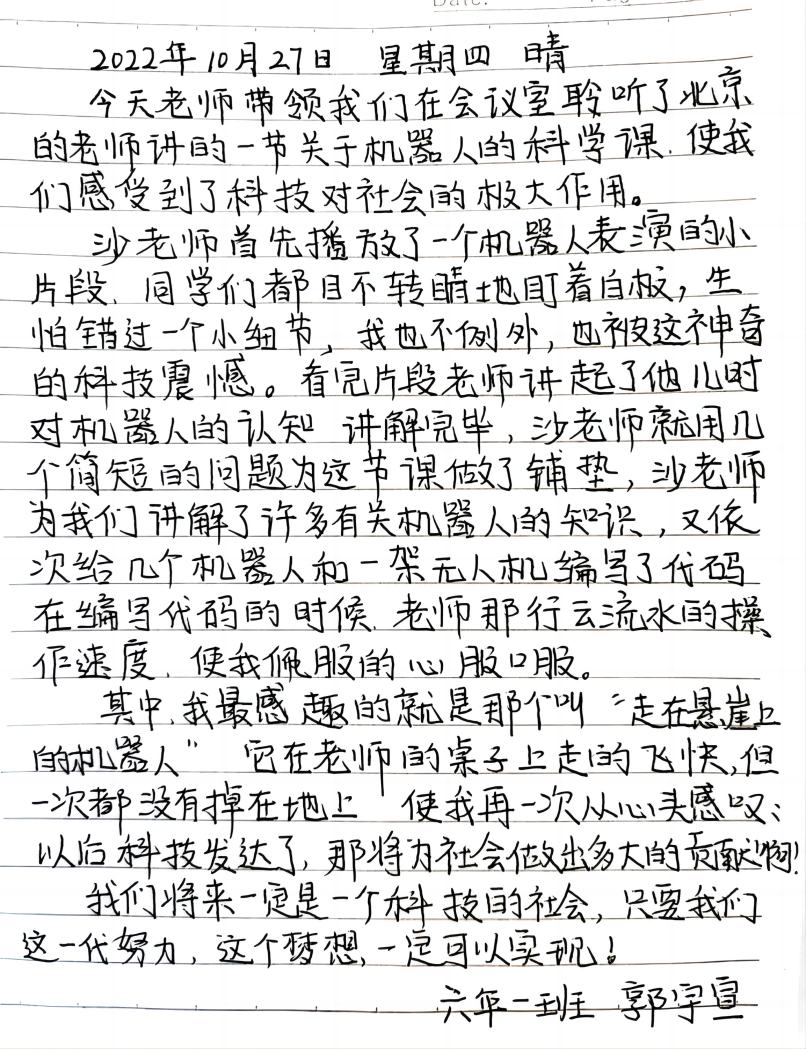 2022年10月27日 星期四 晴
今天老师带领我们在会议室聆听了北京
的老师讲的一节关于机器人的科学课.使我
们感受到了科技对社会的极大作用。
沙老师首先播放了一个机器人表演的小
片段.同学们都目不转睛地盯着白板，生
怕错过一个小细节，我也不例外，也被这神奇
的科技震憾。看完片段老师讲起了他儿时
对机器人的认知 讲解完毕，沙老师就用几
个简短的问题为这节课做了铺垫，沙老师
为我们讲解了许多有关机器人的知识，又依
次给几个机器人和一架无人机编写了代码
在编写代码的时候.老师那行云流水的操
作速度.使我佩服的心服口服。
其中,我最感趣的就是那个叫“走在悬崖上
的机器人” 它在老师的桌子上走的飞快,但
一次都没有掉在地上 使我再一次从心头感叹:
以后科技发达了,那将为社会做出多大的贡献啊!
我们将来一定是一个科技的社会,只要我们
这一代努力,这个梦想,一定可以实现!
六年一班 郭宇宣